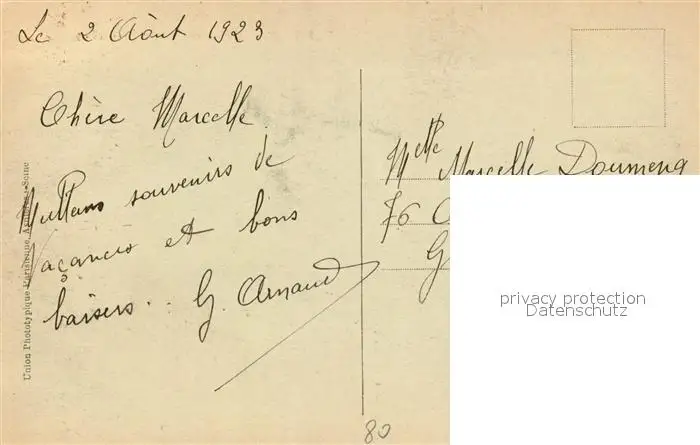 Le 2 Août 1923
Chère Marcelle
souvenirs de
vaçances et bons
baisers.. G. Arnaud
Union Phototypique Parisienne, Asnières-Seine
Melle Marcelle Doumeng
76
G
privacy protection
Datenschutz
80